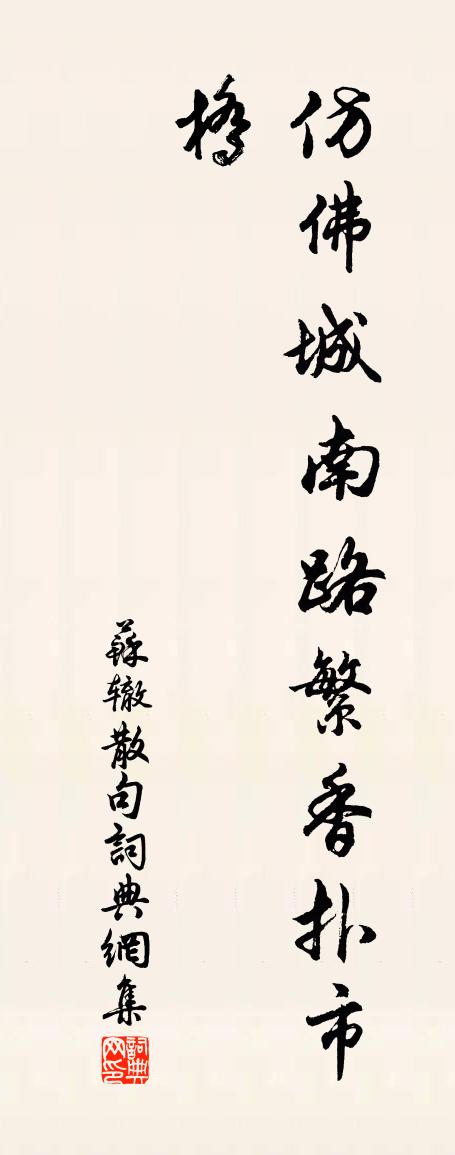 仿佛城南路繁香扑市
橋
蘇辙散句詞典網集
詞典网印